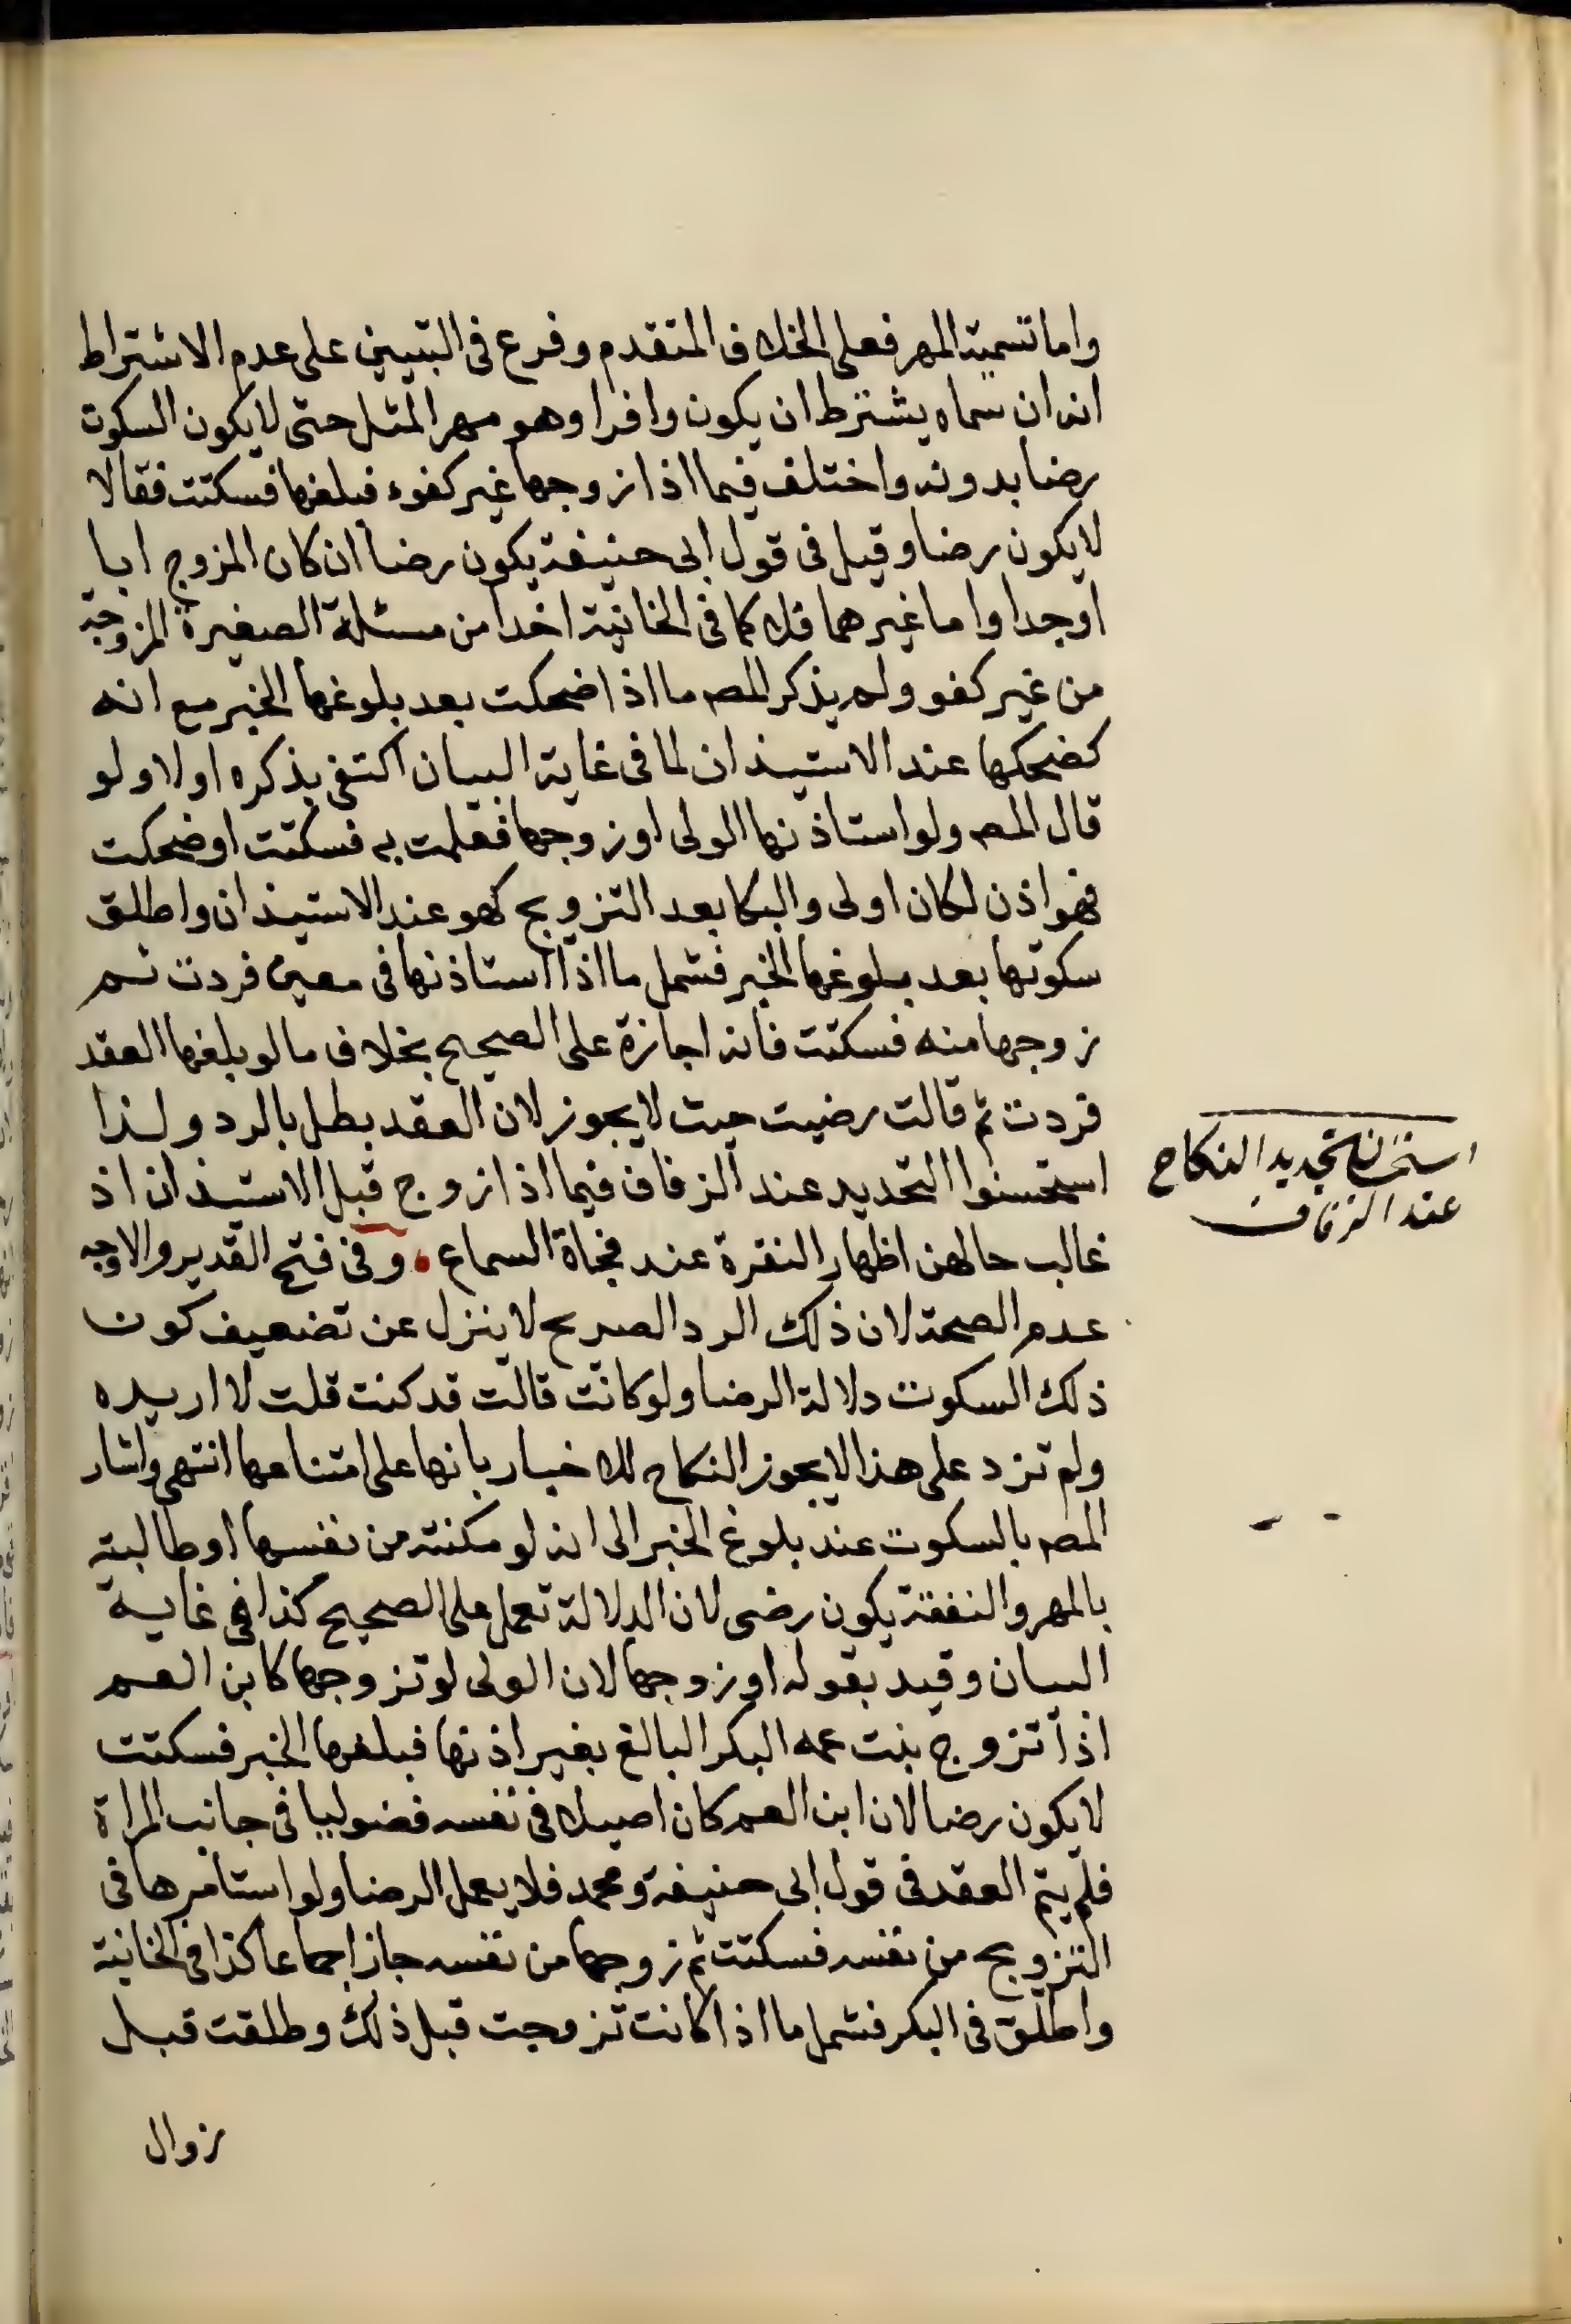 واما تسمية المهر فعلى الخلاف المتقدم وفرع فى التبيين على عدم الاشتراط
انه ان سماه يشترط ان يكون وافرا وهو مهر المثل حتى لا يكون السكوت
رضا بدونه واختلف فيما اذا زوجها غير كفوء فبلغها فسكتت فقالا
لا يكون رضا وقيل فى قول ابى حنيفة يكون رضا ان كان المزوج ابا
او جدا واما غيرهما فلا كما فى الخانية اخذا من مسئلة الصغيرة المزوجة
من غير كفو ولم يذكر المصه ما اذا ضحكت بعد بلوغها الخبر مع انه
كضحكها عند الاستيذان لما فى غاية البيان اكتفى بذكره اولا ولو
قال المصه ولو استاذنها الولى او زوجها فعلمت به فسكتت او ضحكت
فهو اذن لكان اولى والبكا بعد التزويج كهو عند الاستيذان واطلق
سكوتها بعد بلوغها الخبر فشمل ما اذا استاذنها فى معين فردت ثم
زوجها منه فسكتت فانه اجازة على الصحيح بخلاف ما لو بلغها العقد
فردت ثم قالت رضيت حيث لا يجوز لان العقد بطل بالرد ولذا
استحسنوا التجديد عند الزفاف فيما اذا زوج قبل الاستيذان اذ
غالب حالهن اظهار النفرة عند فجاة السماع . وفى فتح القدير والاوجه
عدم الصحة لان ذلك الرد الصريح لا ينزل عن تضعيف كون
ذلك السكوت دلالة الرضا ولو كانت قالت قد كنت قلت لا اريده
ولم تزد على هذا لا يجوز النكاح للاخبار بانها على امتناعها انتهى واشار
المصه بالسكوت عند بلوغ الخبر الى انه لو مكنته من نفسها او طالبته
بالمهر والنفقة يكون رضى لان الدلالة تعمل على الصحيح كذا فى غاية
البيان وقيد بقوله او زوجها لان الولى لو تزوجها كابن العم
اذا تزوج بنت عمه البكر البالغ بغير اذنها فبلغها الخبر فسكتت
لا يكون رضا لان ابن العم كان اصيلا فى نفسه فضوليا فى جانب المراة
فلم يتم العقد فى قول ابى حنيفة ومحمد فلا يعمل الرضا ولو استامرها فى
التزويج من نفسه فسكتت ثم زوجها من نفسه جاز اجماعا كذا فى الخانية
واطلق فى البكر فشمل ما اذا كانت تزوجت قبل ذلك وطلقت قبل
زوال
تجديد النكاح
عند الزفاف